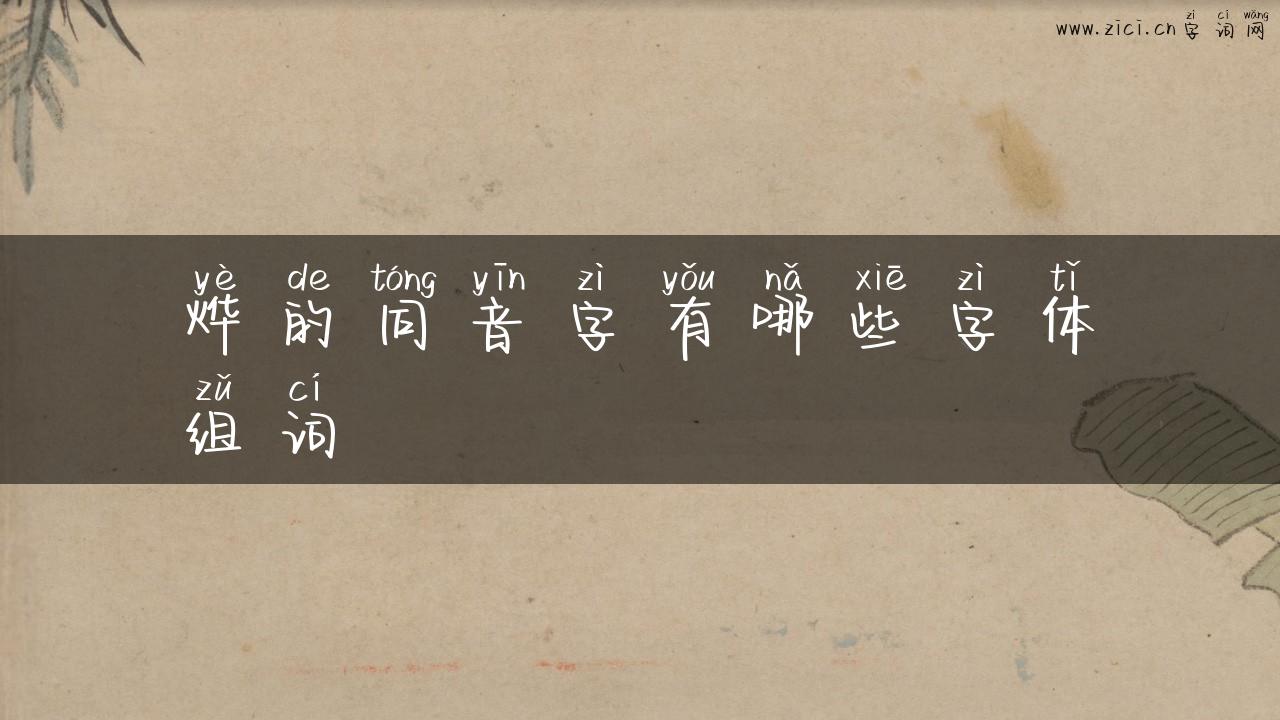 zì cí wǎng
www.zici.cn 字词网
yè de tóng yīn zì yǒu nǎ xiē zì tǐ
烨的同音字有哪些字体
zǔ cí
组词